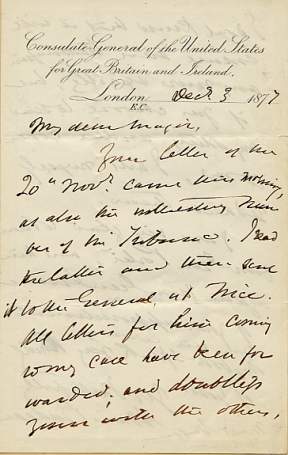 Consulate General of the United States
for Great Britain and Ireland.
London Dec 3 1877
E.C.
My dear Major,
Your letter of the
20" Novr. came this morning,
as also the interesting Num
ber of the Tribune. I read
the latter and then sent
it to the General, at Nice.
All letters for him coming
to my care have been for
warded; and doubtless
yours with the others,